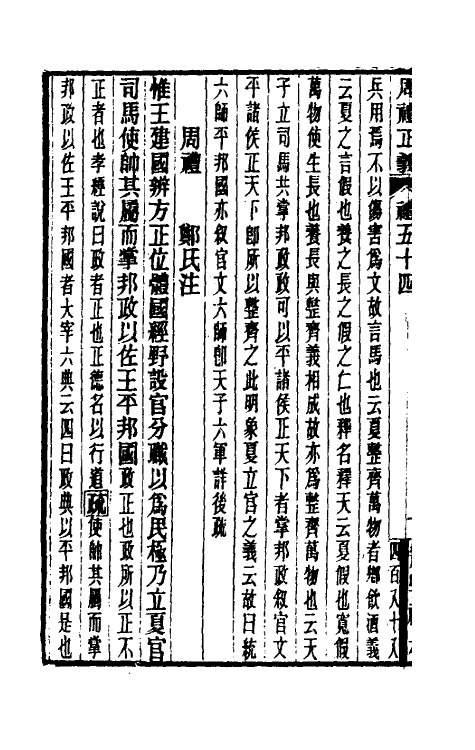 周禮正義 禮五十四
四百八十八
兵用焉不以傷害爲文故言馬也云夏整齊萬物者鄉飲酒義
云夏之言假也養之長之假之仁也釋名釋天云夏假也寬假
萬物使生長也養長與整齊義相成故亦爲整齊萬物也云天
子立司馬共掌邦政政可以平諸侯正天下者掌邦政敘官文
平諸侯正天下卽所以整齊之此明象夏立官之義云故曰統
六師平邦國亦敘官文六師卽天子六軍詳後疏
周禮 鄭氏注
惟王建國辨方正位體國經野設官分職以爲民極乃立夏官
司馬使帥其屬而掌邦政以佐王平邦國政正也政所以正不
正者也孝經說曰政者正也正德名以行道疏使帥其屬而掌
邦政以佐王平邦國者大宰六典云四曰政典以平邦國是也